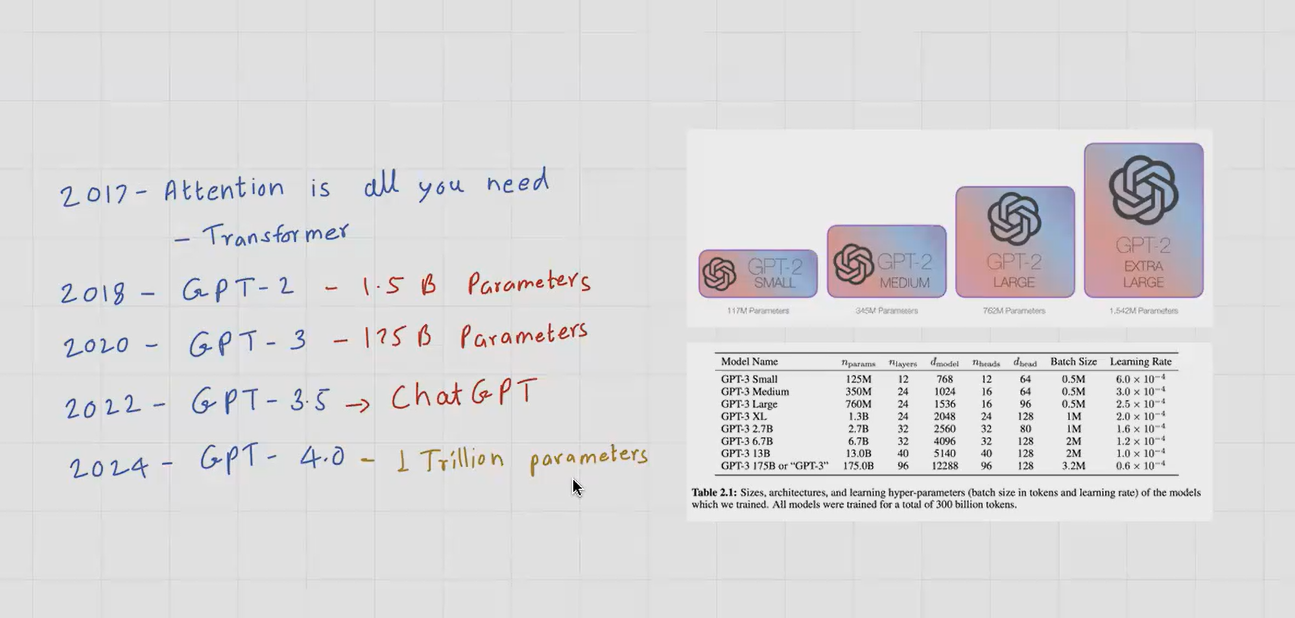 2017 - Attention is all you need
- Transformer
2018 - GPT-2 - 1.5 B Parameters
2020 - GPT-3 - 175 B Parameters
2022 - GPT-3.5 → ChatGPT
2024 - GPT-4.0 - 1 Trillion parameters
GPT-2 SMALL
117M Parameters
GPT-2 MEDIUM
345M Parameters
GPT-2 LARGE
762M Parameters
GPT-2 EXTRA LARGE
1,542M Parameters
Model Name nparams nlayers dmodel nheads dhead Batch Size Learning Rate
GPT-3 Small 125M 12 768 12 64 0.5M 6.0 × 10⁻⁴
GPT-3 Medium 350M 24 1024 16 64 0.5M 3.0 × 10⁻⁴
GPT-3 Large 760M 24 1536 16 96 0.5M 2.5 × 10⁻⁴
GPT-3 XL 1.3B 24 2048 24 128 1M 2.0 × 10⁻⁴
GPT-3 2.7B 2.7B 32 2560 32 80 1M 1.6 × 10⁻⁴
GPT-3 6.7B 6.7B 32 4096 32 128 2M 1.2 × 10⁻⁴
GPT-3 13B 13.0B 40 5140 40 128 2M 1.0 × 10⁻⁴
GPT-3 175B or “GPT-3” 175.0B 96 12288 96 128 3.2M 0.6 × 10⁻⁴
Table 2.1: Sizes, architectures, and learning hyper-parameters (batch size in tokens and learning rate) of the models
which we trained. All models were trained for a total of 300 billion tokens.